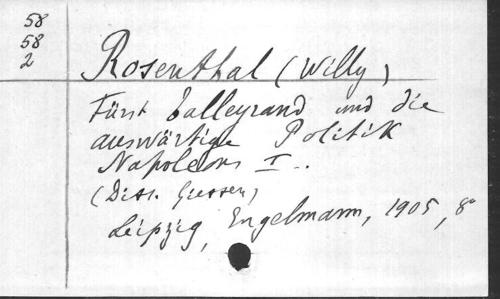 58
58
2
Rosenthal (Willy)
Fürst Talleyrand und die
auswärtige Politik
Napoleons I..
(Diss. Giessen)
Leipzig, Engelmann, 1905, 8°